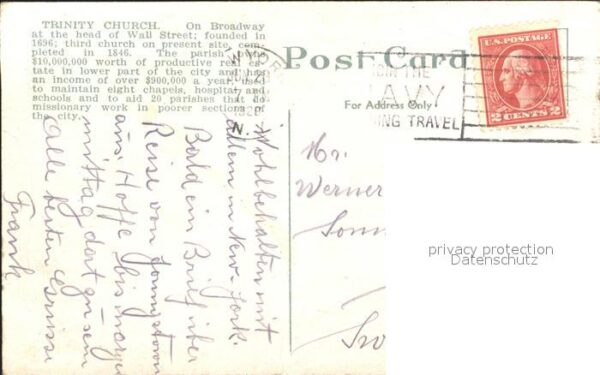 TRINITY CHURCH. On Broadway
at the head of Wall Street; founded in
1696; third church on present site, com-
pleted in 1846. The parish owns
$10,000,000 worth of productive real es-
tate in lower part of the city and has
an income of over $900,000 a year used
to maintain eight chapels, hospital and
schools and to aid 20 parishes that do
missionary work in poorer sections of
the city.
Post Card
For Address Only
JOIN THE
NAVY
TRAVEL
U.S. POSTAGE
2 CENTS 2
Wohlbehalten mit
allem in New-York.
Bald ein Brief über
Reise von
aus. Hoffe bis morgen
mittag dort zu sein
Alle besten Grüsse
Frank
Mr.
Werner
privacy protection
Datenschutz